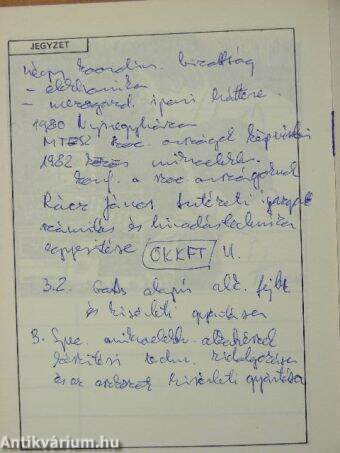 JEGYZET
négy koordin. bizottság
– elektronika
– mezőgazd. ipari háttere
1980 Nyíregyháza
MTESZ szoc. országok képviselői
1982 közös mikroelektr.
konf. a szoc. országoknak
Rácz János Intézeti igazgató
számítás és híradástechnika
egyesítése OKKFT
3.2. GaAs alapú alk. fejl.
és kísérleti gyártása
3. Spec. mikroelektr. alkatrészek
készítési techn. kidolgozása
és az eszközök kísérleti gyártása
Antikvárium.hu